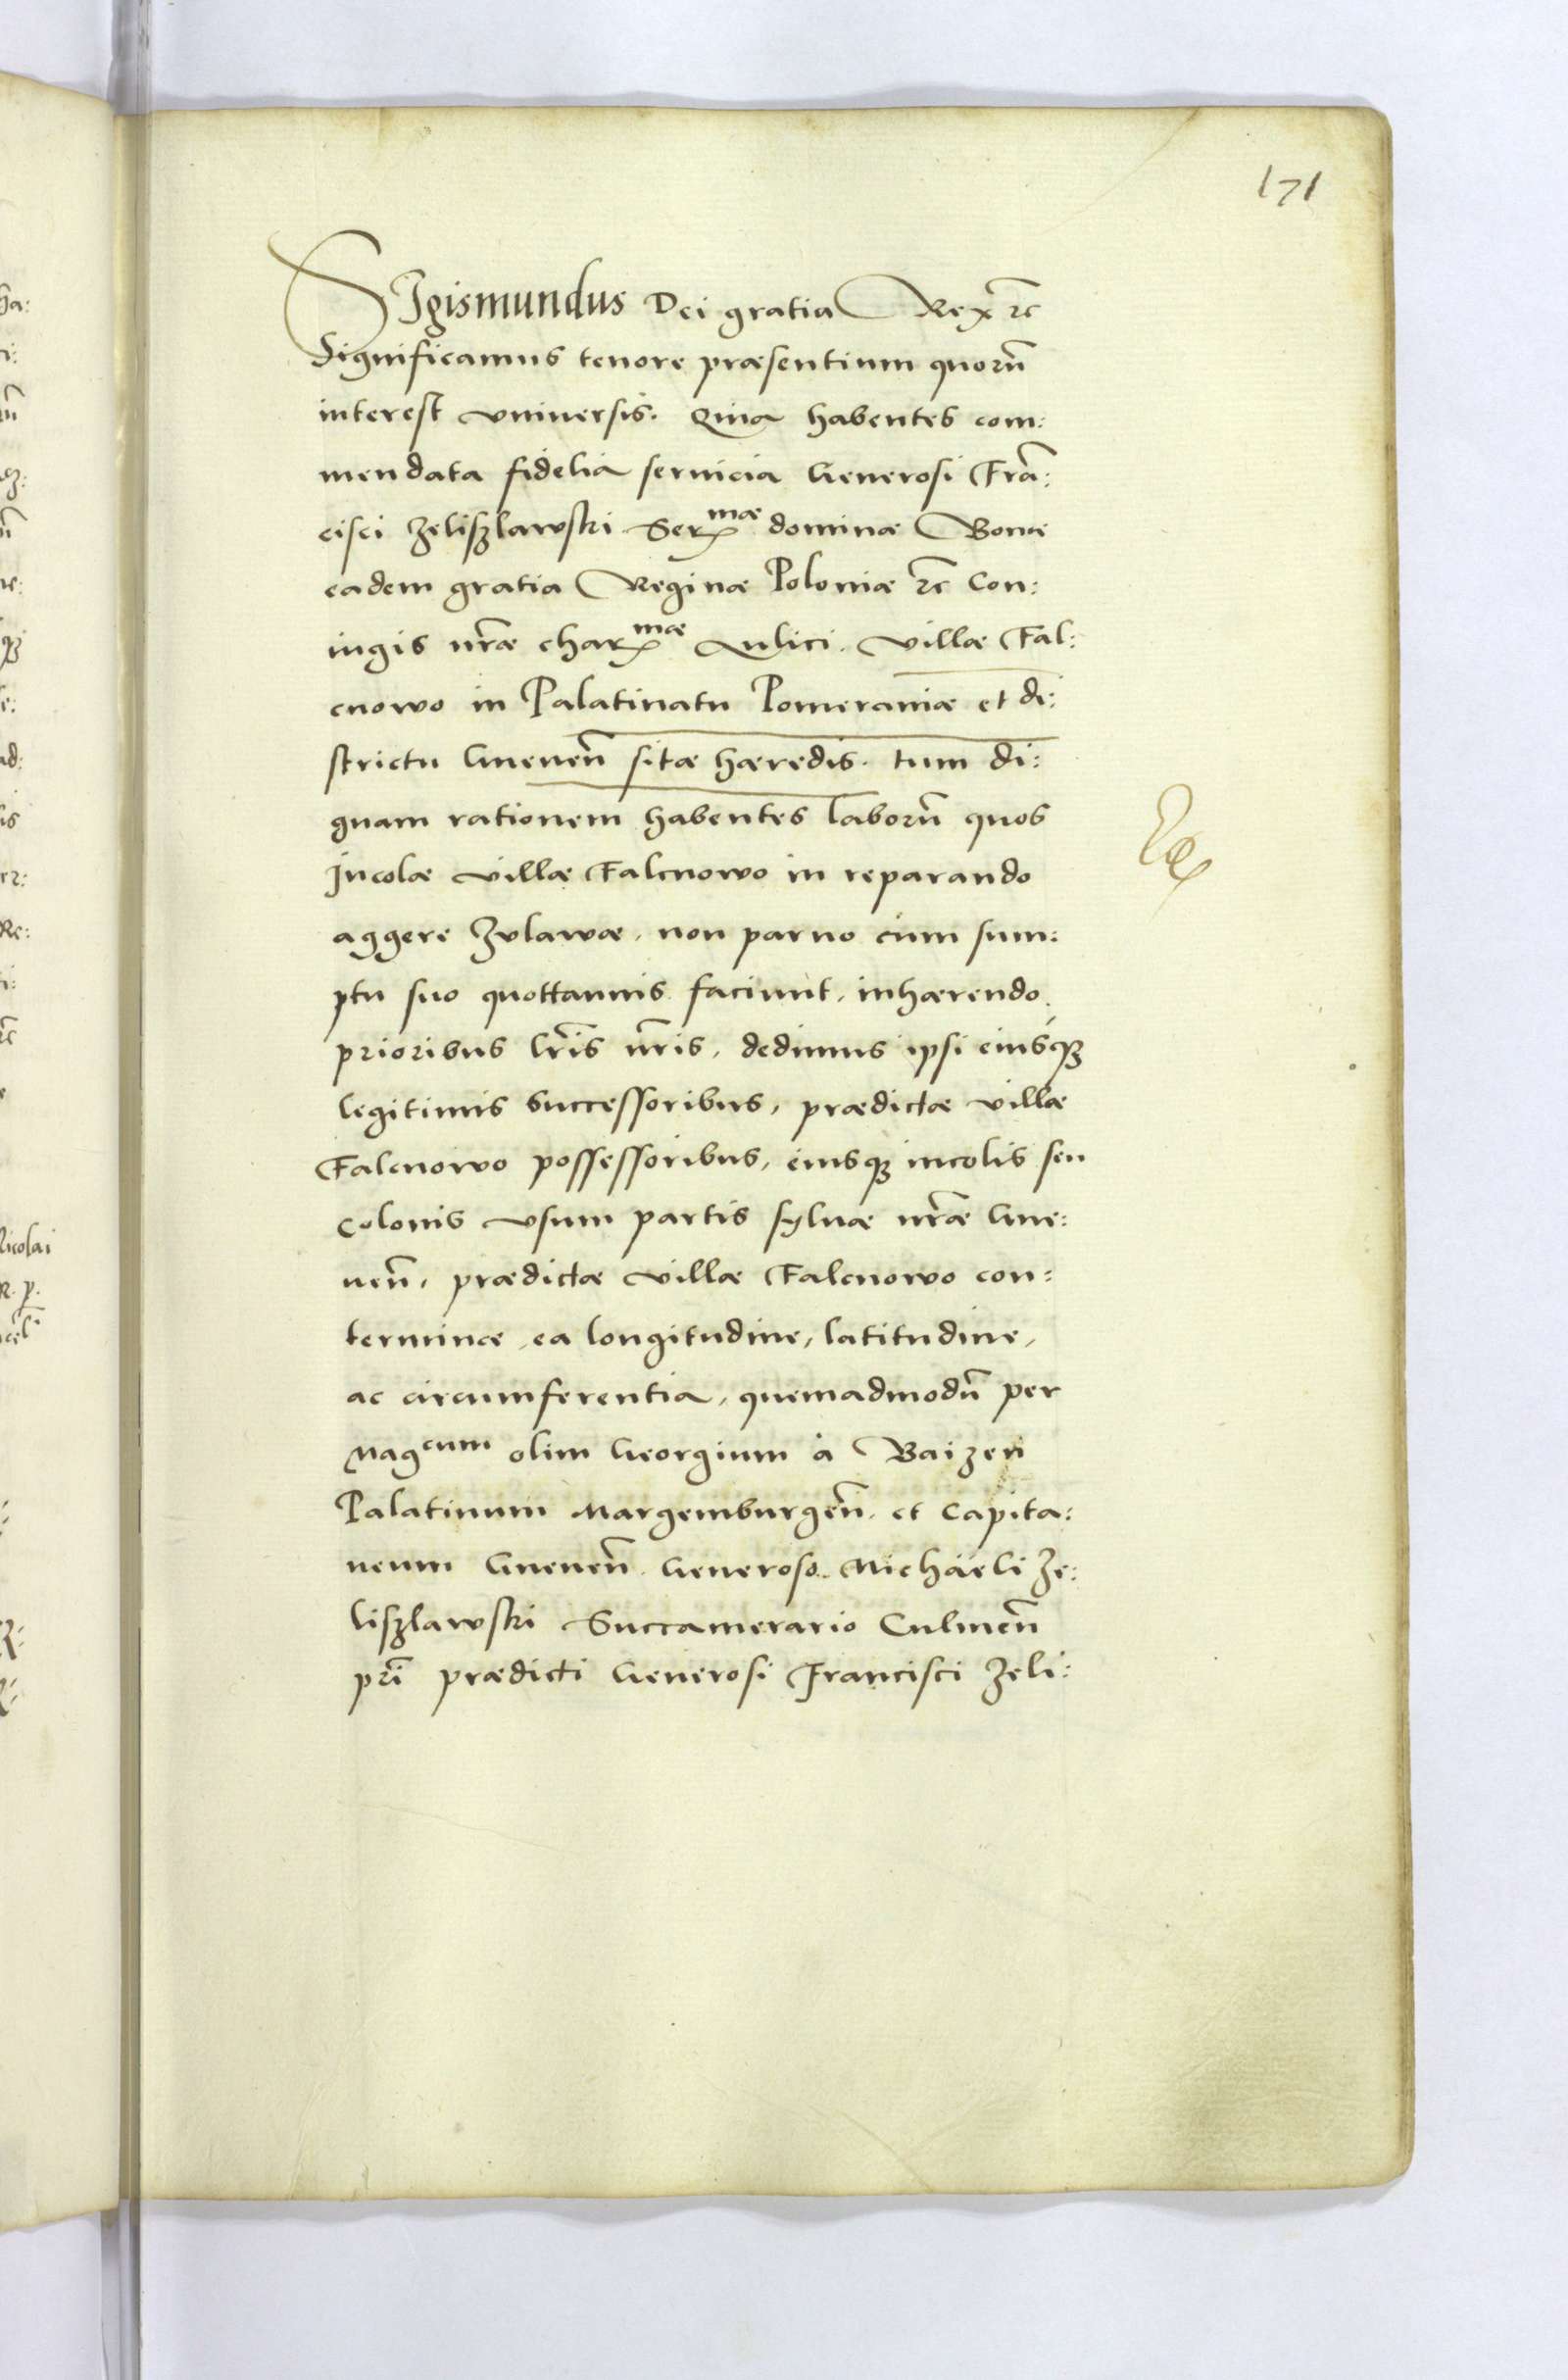 171
SIgismundus Dei gratia Rex rc̃
Significamus tenore præsentium quorũ
interest vniuersis. Quia habentes com:
mendata fidelia seruicia Generosi Frã:
cisci Zeliszlawski Serᵐᵃᵉ dominæ Bonæ
eadem gratia Reginæ Poloniæ rc̃ Con:
iugis nr̃æ charᵐᵃᵉ Aulici. villæ Fal:
cnowo in Palatinatu Pomeraniæ et di:
strictu Gneuen̄ sitæ hæredis. tum di:
gnam rationem habentes laborũ quos
Incolæ villæ Falcnowo in reparando
aggere Zulawæ, non paruo cum sum:
ptu suo quottannis faciunt, inhærendo
prioribus lr̃is nr̃is, dedimus ipsi eiusqȝ
legitimis successoribus, prædictæ villæ
Falcnowo possessoribus, eiusqȝ incolis seu
colonis vsum partis syluæ nr̃æ Gne:
uen̄, prædictæ villæ Falcnowo con:
terminæ, ea longitudine, latitudine,
ac circumferentia, quemadmodũ per
Magᶜᵘᵐ olim Georgium à Baizen
Palatinum Margemburgen̄. et Capita:
neum Gneuen̄. Generoso Michaeli Ze:
liszlawski Succamerario Culmen̄
pr̃i prædicti Generosi Francisci Zeli: